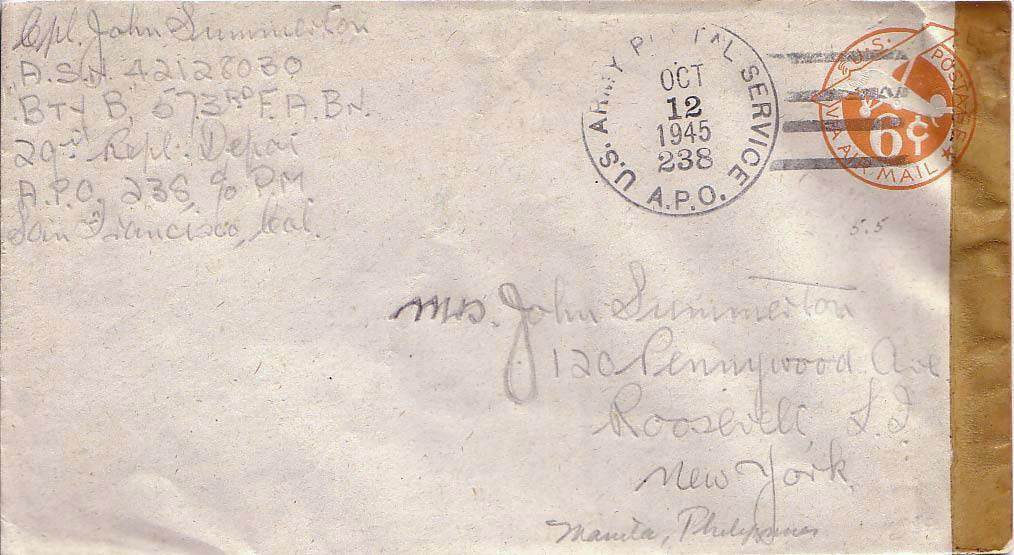 Cpl. John Summerton
A.S.N. 42128030
BTY B, 573RD F.A. BN.
29th Repl. Depot
A.P.O. 238, % PM
San Francisco, Cal.
U.S. ARMY POSTAL SERVICE
OCT
12
1945
238
A.P.O.
U.S. POSTAGE
6¢
VIA AIR MAIL
5.5
Mrs. John Summerton
120 Pennywood Ave
Roosevelt L.I.
New York
Manila, Philippines